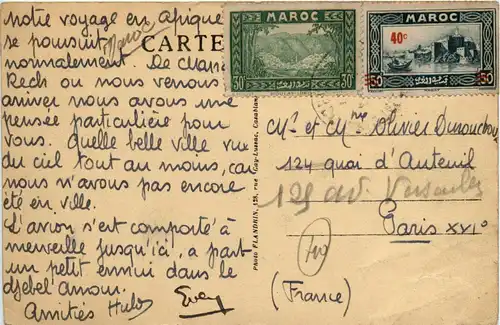 Notre voyage en Afrique
se poursuit
normalement. De
Kech ou nous venons
arriver nous avons une
pensée particulière pour
vous. Quelle belle ville vue
du ciel tout au moins, car
nous n'avons pas encore
été en ville.
L'avion s'est comporté à
merveille jusqu'ici, a part
un petit ennui dans le
djebel Amour.
Amitiés
Maroc
CARTE
PHOTO FLANDRIN, Casablanca
MAROC
30c 30c
MAROC
40c
50 50
Mr et Mme Olivier
124 quai d'Auteuil
125 av. Versailles
Paris XVIe
(France)